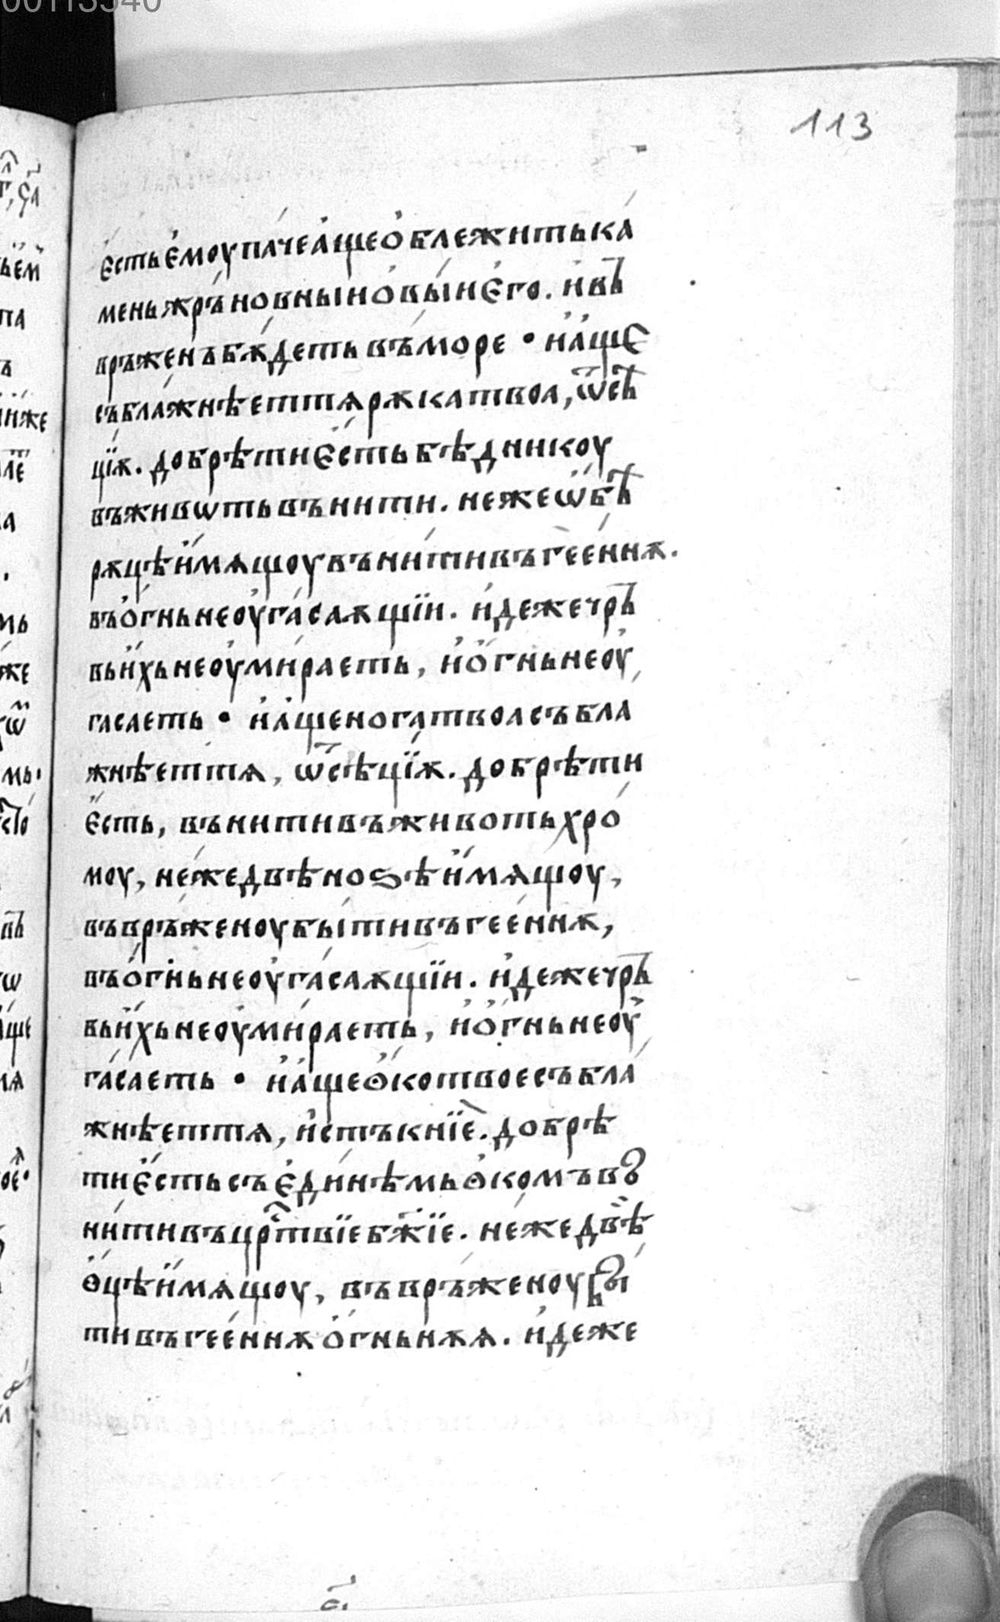 00113540
113
є҆стьє҆моупачеа҆щео҆блежитька
меньжрьновныно҆вы́и҆не҆го. и҆въ
връженъбѫдетьвъморе • и҆а҆ще
съблажнѣеттѧрѫкатвоа, ѿсѣ
цїѫ. добрѣтиє҆стьбѣдникоу
въживѡтьвънити. нежеѡ҆бѣ
рѫцѣи҆мѧщоувънитивъгеѐннѫ.
въо҆гньнеоу҆гасаѫщїи. и҆дежечръ
вьи҆хьнеоу҆мираеть, и҆о҆гньнеоу҆
гасаеть • и҆а҆щеногатвоасъбла
жнѣеттѧ, ѿсѣцїѫ. добрѣти
є҆сть, вънитивъживотьхро
моу, нежедвѣноѕѣи҆мѧщоу,
въврьженоубытивъгеѐннѫ,
въо҆гньнеоу҆гасаѫщїи. и҆дежечръ
вьи҆хьнеоу҆мираеть, и҆о҆гньнеоу҆
гасаеть • и҆а҆щеѻ҆котвоесъбла
жнѣеттѧ, и҆стъкнїѐ. добрѣ
тиє҆стьсъє҆динѣмьѻ҆комъвъ
нитивъцрⷭ҇твїебж҃їе. нежедвѣ
ѻ҆цѣи҆мѧщоу, въврьженоубы
тивъгеѐннѫо҆гньнѫѧ. и҆деже